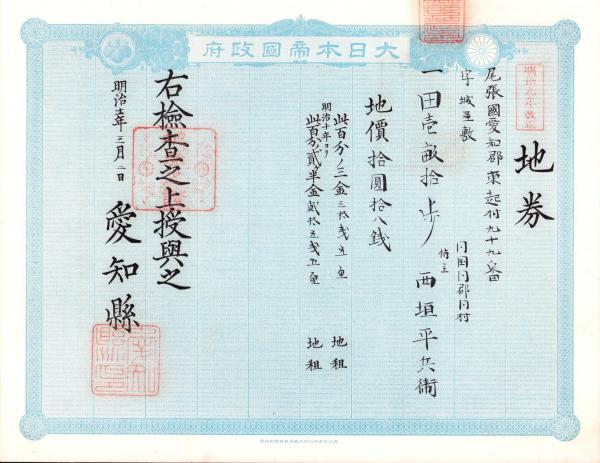 大日本帝國政府
明治九年改正
地券
尾張國愛知郡東起村九十九番
字城屋敷
一田壱畝拾歩
同國同郡同村
持主 西垣平兵衛
地價拾圓拾八銭
此百分ノ三金三拾銭五厘 地租
明治十年ヨリ
此百分ノ貳ヶ半金貳拾五銭五厘 地租
右檢査之上授與之
明治 年三月 日
愛知縣
愛知縣印